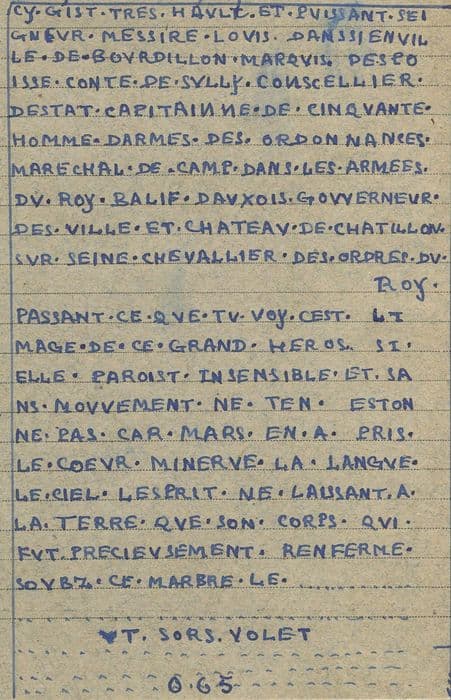 CY·GIST·TRES·HAVLT·ET·PVISSANT·SEI
GNEVR·MESSIRE·LOVIS·DANSSIENVIL
LE·DE·BOVRDILLON·MARQVIS·DESPO
ISSE·CONTE·DE·SVLLY·CONSCELLIER·
DESTAT·CAPITAINNE·DE·CINQVANTE·
HOMME·DARMES·DES·ORDONNANCES·
MARECHAL·DE·CAMP·DANS·LES·ARMEES·
DV·ROY·BALIF·DAVXOIS·GOVVERNEVR·
DES·VILLE·ET·CHATEAV·DE·CHATILLON·
SVR·SEINE·CHEVALLIER·DES·ORDRES·DV·
ROY·
PASSANT·CE·QVE·TV·VOY·CEST· LI
MAGE·DE·CE·GRAND·HEROS· SI·
ELLE· PAROIST·INSENSIBLE·ET·SA
NS·MOVVEMENT·NE·TEN· ESTON
NE·PAS·CAR·MARS·EN·A· PRIS·
LE·COEVR·MINERVE·LA·LANGVE·
LE·CIEL·LESPRIT·NE·LAISSANT·A·
LA·TERRE·QVE·SON·CORPS·QVI·
FVT·PRECIEVSEMENT·RENFERME·
SOVBZ·CE·MARBRE·LE·..............
VT·SORS·VOLET
0.65